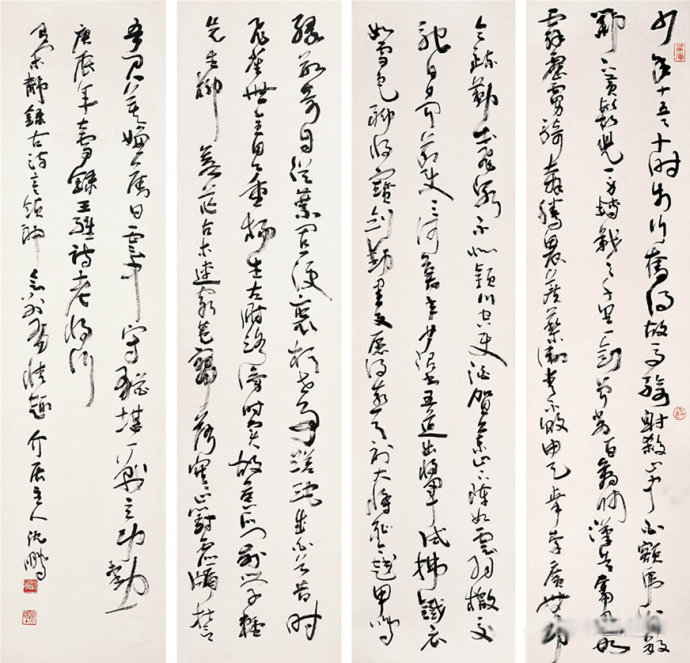 少年十五二十時步行奪得胡馬騎射殺山中白額虎肯數
鄴下黃鬚兒一身轉戰三千里一劍曾當百萬師漢兵奮迅如
霹靂虜騎奔騰畏蒺藜衛青不敗由天幸李廣無功
令疏勒出飛泉不似潁川空使酒賀蘭山下陣如雲羽檄交
馳日夕聞節使三河募年少詔書五道出將軍試拂鐵衣
如雪色聊持寶劍動星文願得燕弓射大將恥令越甲鳴
緣數奇自從棄置便衰朽世事蹉跎成白首昔時
飛雀無全目今日垂楊生左肘路旁時賣故侯瓜門前學種
先生柳蒼茫古木連窮巷寥落寒山對虛牖誓
吾君莫嫌舊日雲中守猶堪一戰立功勳
庚辰年錄王維詩老將行
靜錄古詩意領神會別有快趣介居主人沈鵬